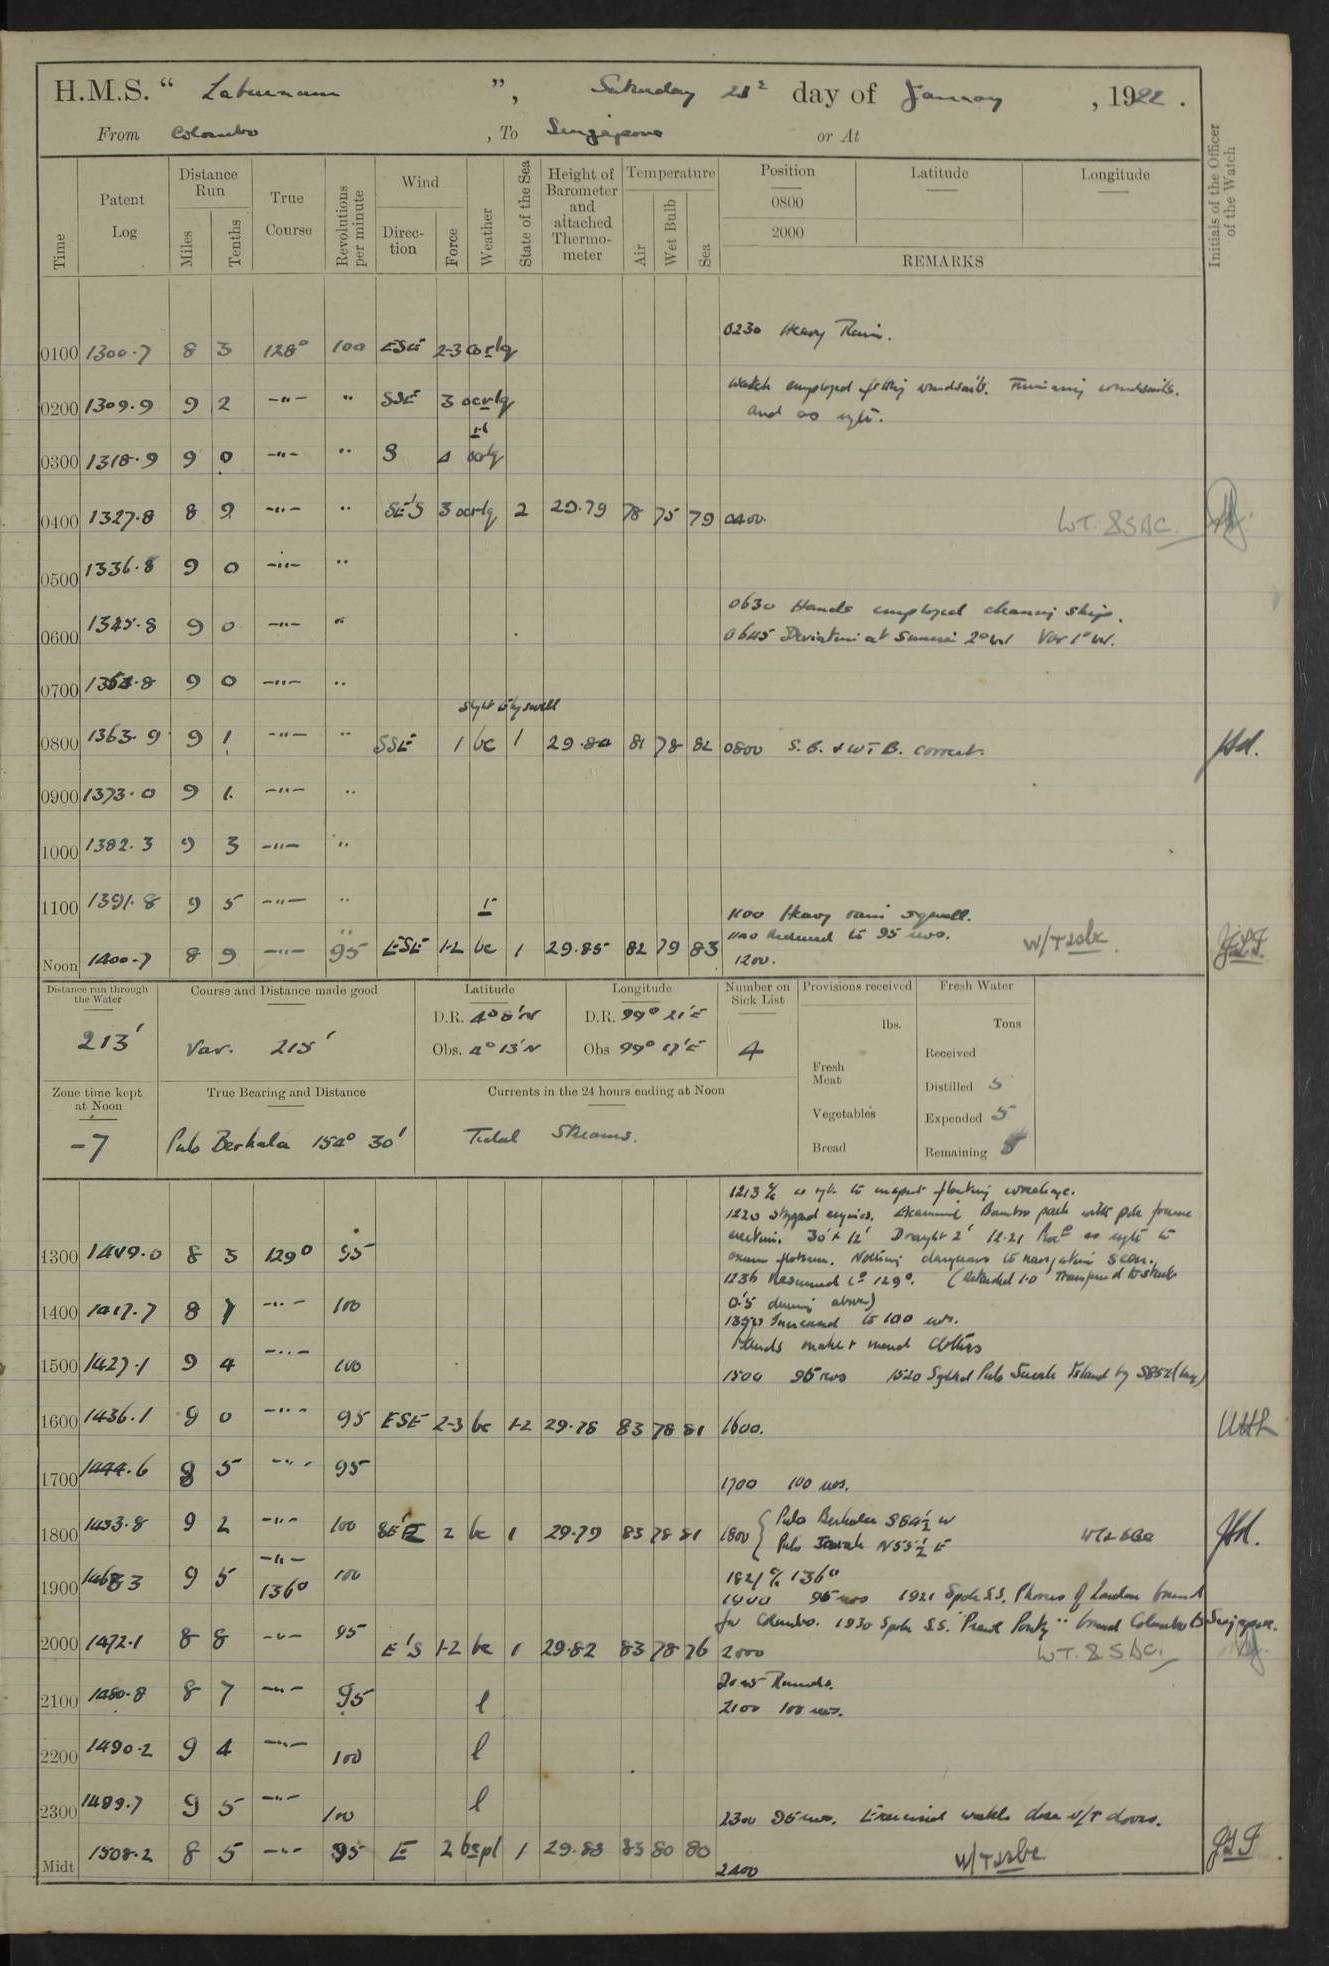 H.M.S. “ Laburnum ”, Saturday 28 day of January, 1922.
From Colombo, To Singapore or At
Time
Patent Log
Distance Run
Miles
Tenths
True Course
Revolutions per minute
Wind
Direction
Force
Weather
State of the Sea
Height of Barometer and attached Thermometer
Temperature
Air
Wet Bulb
Sea
Position
0800
2000
Latitude
Longitude
REMARKS
Initials of the Officer of the Watch
0230 Heavy Rain.
0100 1300.7 8 3 128° 100 ESE 2-3 corlq
Watch employed windsails. windsails.
0200 1309.9 9 2 -"- " SSE 3 ocrlq and as
0300 1318.9 9 0 -"- " S 4
0400 1327.8 8 9 -"- " SE'S 3 ocrlq 2 29.79 78 75 79 0400. WT. & SBC.
0500 1336.8 9 0 -"- "
0630 Hands employed cleaning ship.
0600 1345.8 9 0 -"- " 0645 Deviation at Sunrise 2°W Var 1°W.
0700 1354.8 9 0 -"- "
slight swell
0800 1363.9 9 1 -"- " SSE 1 bc 1 29.80 81 78 82 0800 S.B. & WTB. correct.
0900 1373.0 9 1 -"- "
1000 1382.3 9 3 -"- "
1100 1391.8 9 5 -"- " r
1100 Heavy rain squall.
Reduced to 95 revs.
Noon 1400.7 8 9 -"- 95 ESE 1-2 bc 1 29.85 82 79 83 1200. W/T & SBC
Distance run through the Water
213'
Course and Distance made good
Var. 215'
Latitude
D.R. 4° 8' N
Obs. 4° 13' N
Longitude
D.R. 99° 21' E
Obs 99° 17' E
Number on Sick List
4
Provisions received
lbs.
Fresh Meat
Vegetables
Bread
Fresh Water
Tons
Received
Distilled 5
Expended 5
Remaining
Zone time kept at Noon
-7
True Bearing and Distance
Pulo Berhala 154° 30'
Currents in the 24 hours ending at Noon
Tidal Streams.
1213 to inspect floating wreckage.
1220 stopped engines. Examined Bamboo with pole frame
30' x 12' Draught 2' 12.21 as to
1300 1409.0 8 3 129° 95 flotsam. Nothing dangerous to navigation seen.
1236 Resumed Co 129°.
1400 1417.7 8 7 -"- 100 0.5 during above)
Increased to 100 revs.
Hands make & mend clothes
1500 1427.1 9 4 -"- 100 1500 95 revs 1520 Sighted Pulo Jarak Island
1600 1436.1 9 0 -"- 95 ESE 2-3 bc 1-2 29.78 83 78 81 1600.
1700 1444.6 8 5 -"- 95 1700 100 revs.
1800 1453.8 9 2 -"- 100 2 bc 1 29.79 83 78 81 1800 { Pulo Berhala S84½W
Pulo Jarak N55½E
1821 136°
1900 9 5 -"- 136° 100 1900 95 revs 1921 Spoke S.S. of London bound
for Colombo. 1930 Spoke S.S. bound Colombo to Singapore.
2000 1472.1 8 8 -"- 95 E'S 1-2 bc 1 29.82 83 78 76 2000 WT. & SBC.
2045 Rounds.
2100 1480.8 8 7 -"- 95 l 2100 100 revs.
2200 1490.2 9 4 -"- 100 l
2300 1499.7 9 5 -"- 100 l 2300 95 revs. Exercised watch close W/T doors.
Midt 1508.2 8 5 -"- 95 E 2 1 29.83 83 80 80 2400 W/T & SBC